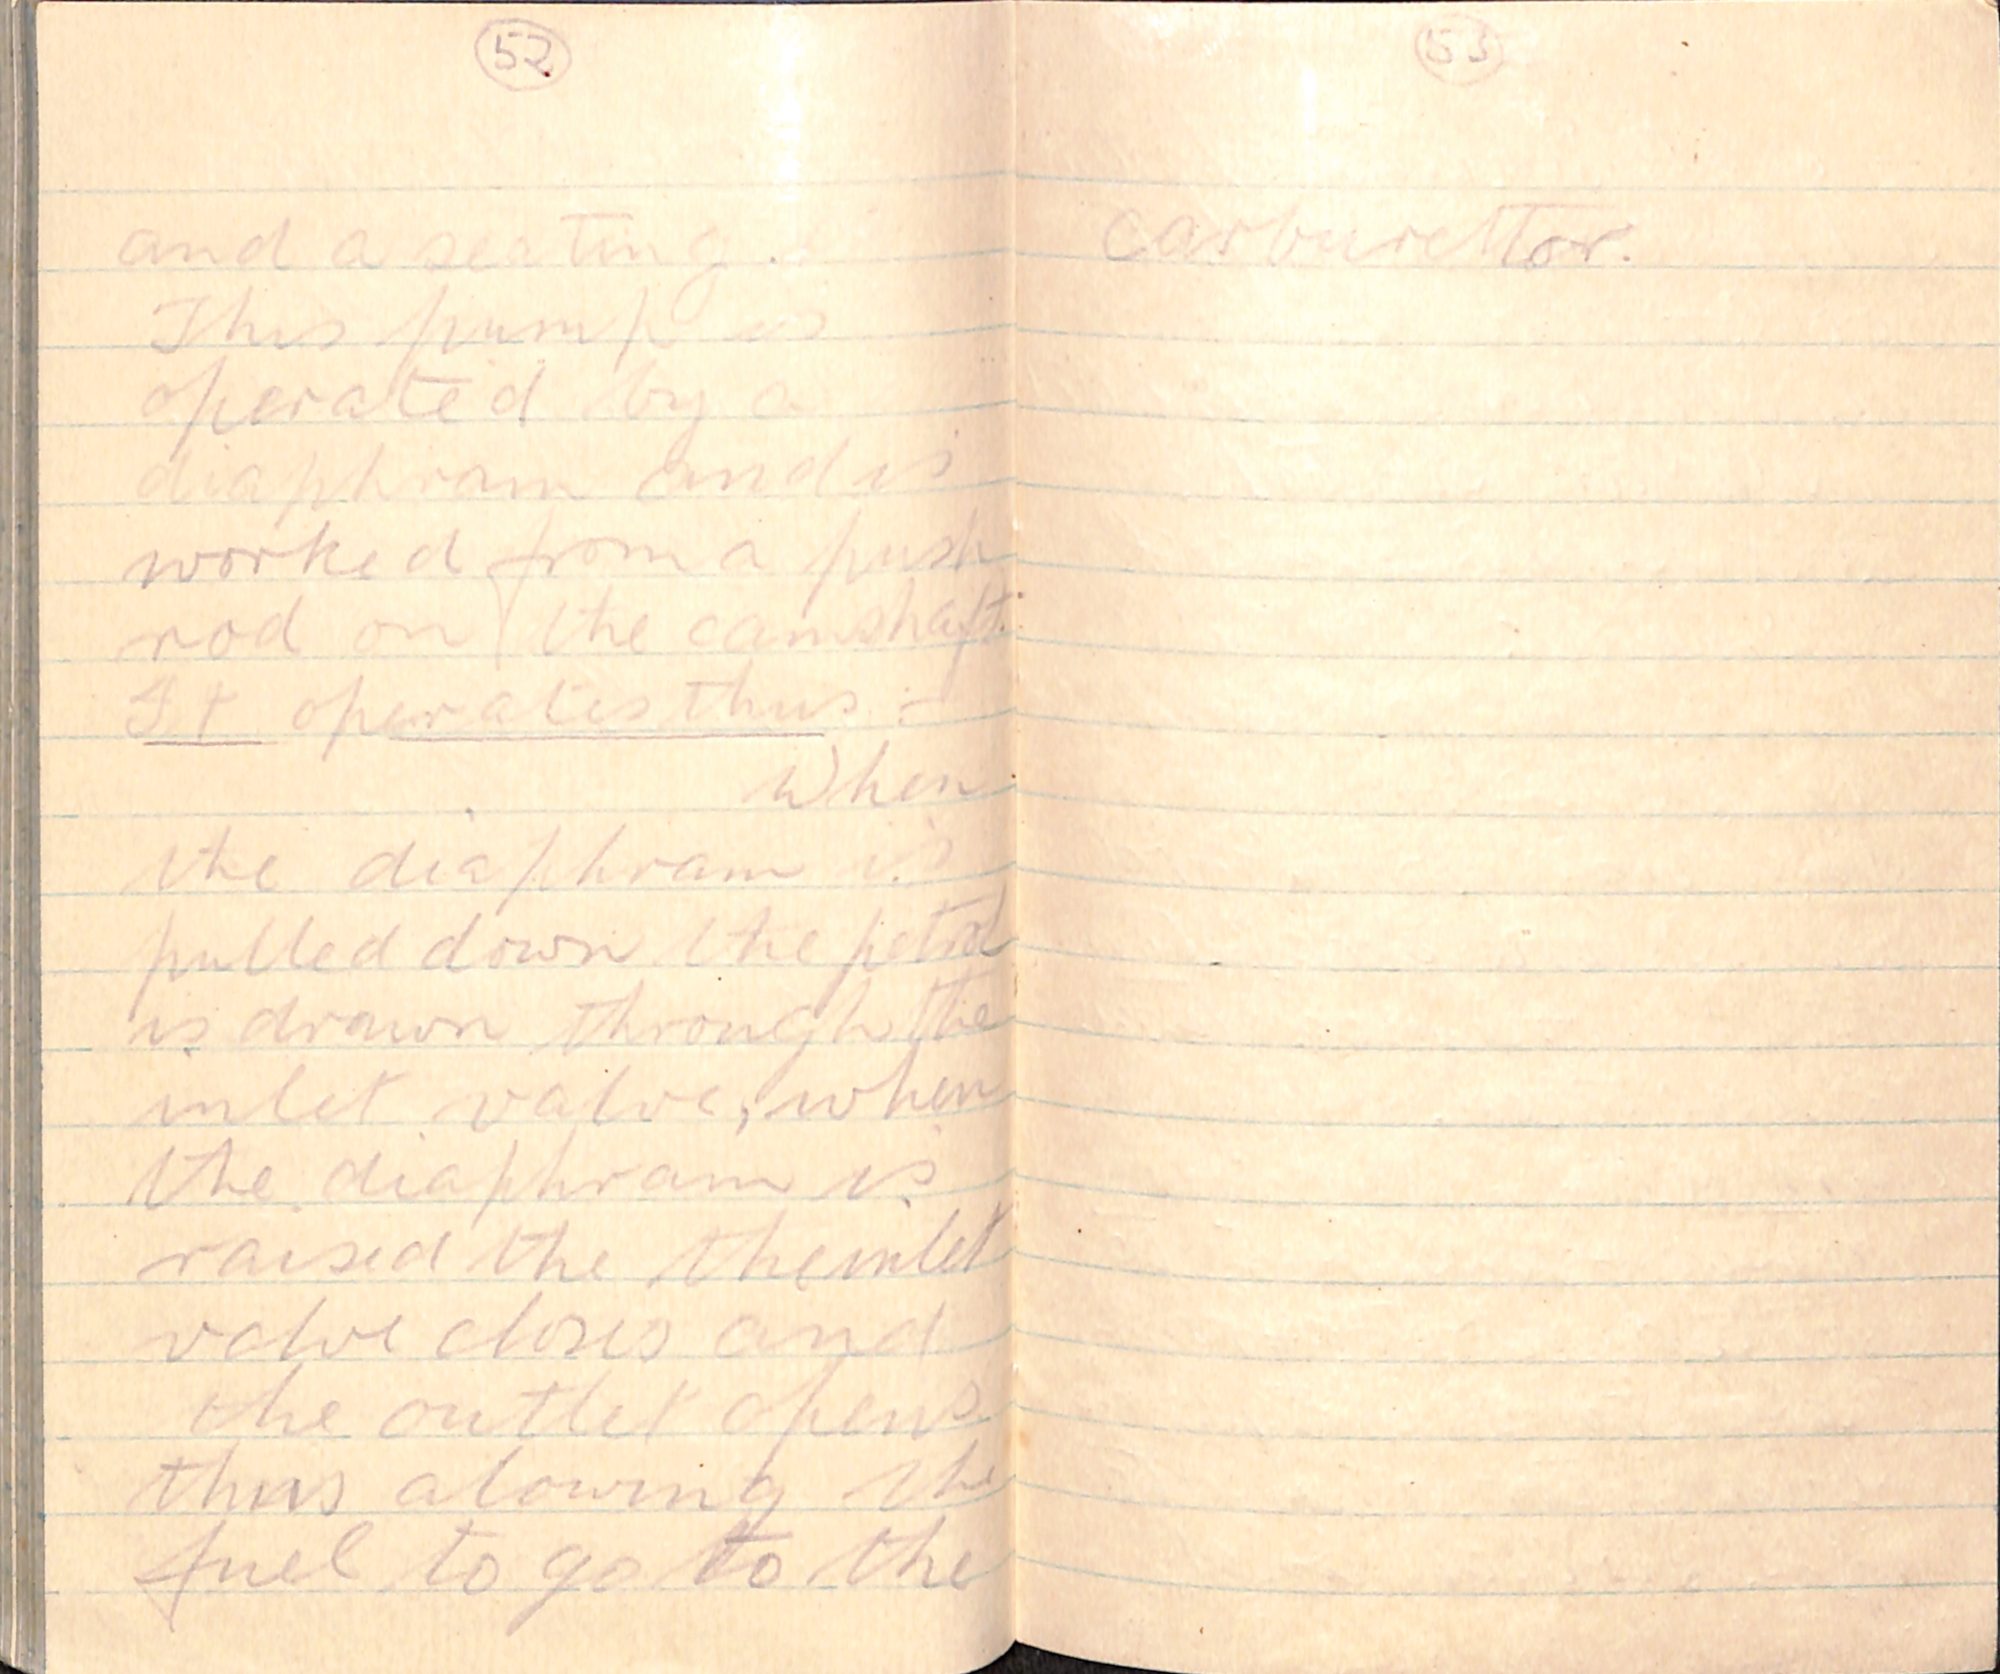 52
and a seating.
This pump is
operated by a
diaphram and is
worked from a push
rod on the camshaft.
It operates thus :-
When
the diaphram is
pulled down the petrol
is drawn through the
inlet valve, when
the diaphram is
raised the the inlet
valve closes and
the outlet opens
thus alowing the
fuel to go to the
53
carburettor.